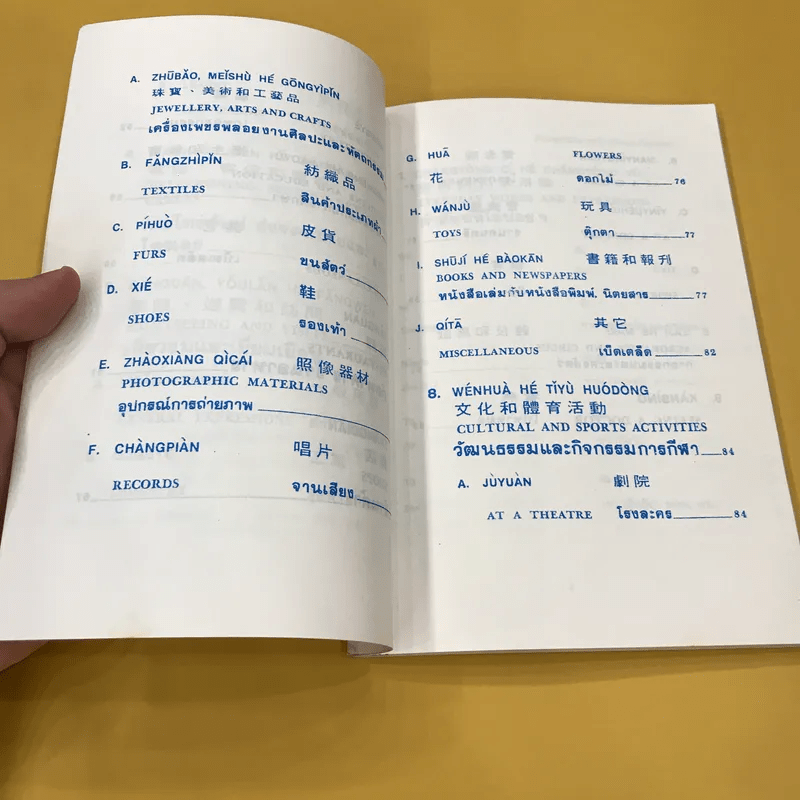 A. ZHŪBǍO, MEǏSHÙ HÉ GŌNGYÌPǏN
珠寶、美術和工藝品
JEWELLERY, ARTS AND CRAFTS
เครื่องเพชรพลอย งานศิลปะและหัตถกรรม
B. FǍNGZHĪPǏN 紡織品
TEXTILES สินค้าประเภทผ้า
C. PÍHUÒ 皮貨
FURS ขนสัตว์
D. XIÉ 鞋
SHOES รองเท้า
E. ZHÀOXIÀNG QÌCÁI 照像器材
PHOTOGRAPHIC MATERIALS
อุปกรณ์การถ่ายภาพ
F. CHÀNGPIÀN 唱片
RECORDS จานเสียง
G. HUĀ FLOWERS
花 ดอกไม้ 76
H. WÁNJÙ 玩具
TOYS ตุ๊กตา 77
I. SHŪJÍ HÉ BÀOKĀN 書籍和報刋
BOOKS AND NEWSPAPERS
หนังสือเล่มกับหนังสือพิมพ์, นิตยสาร 77
J. QÍTĀ 其它
MISCELLANEOUS เบ็ดเตล็ด 82
8. WÉNHUÀ HÉ TǏYÙ HUÓDÒNG
文化和體育活動
CULTURAL AND SPORTS ACTIVITIES
วัฒนธรรมและกิจกรรมการกีฬา 84
A. JÙYUÀN 劇院
AT A THEATRE โรงละคร 84